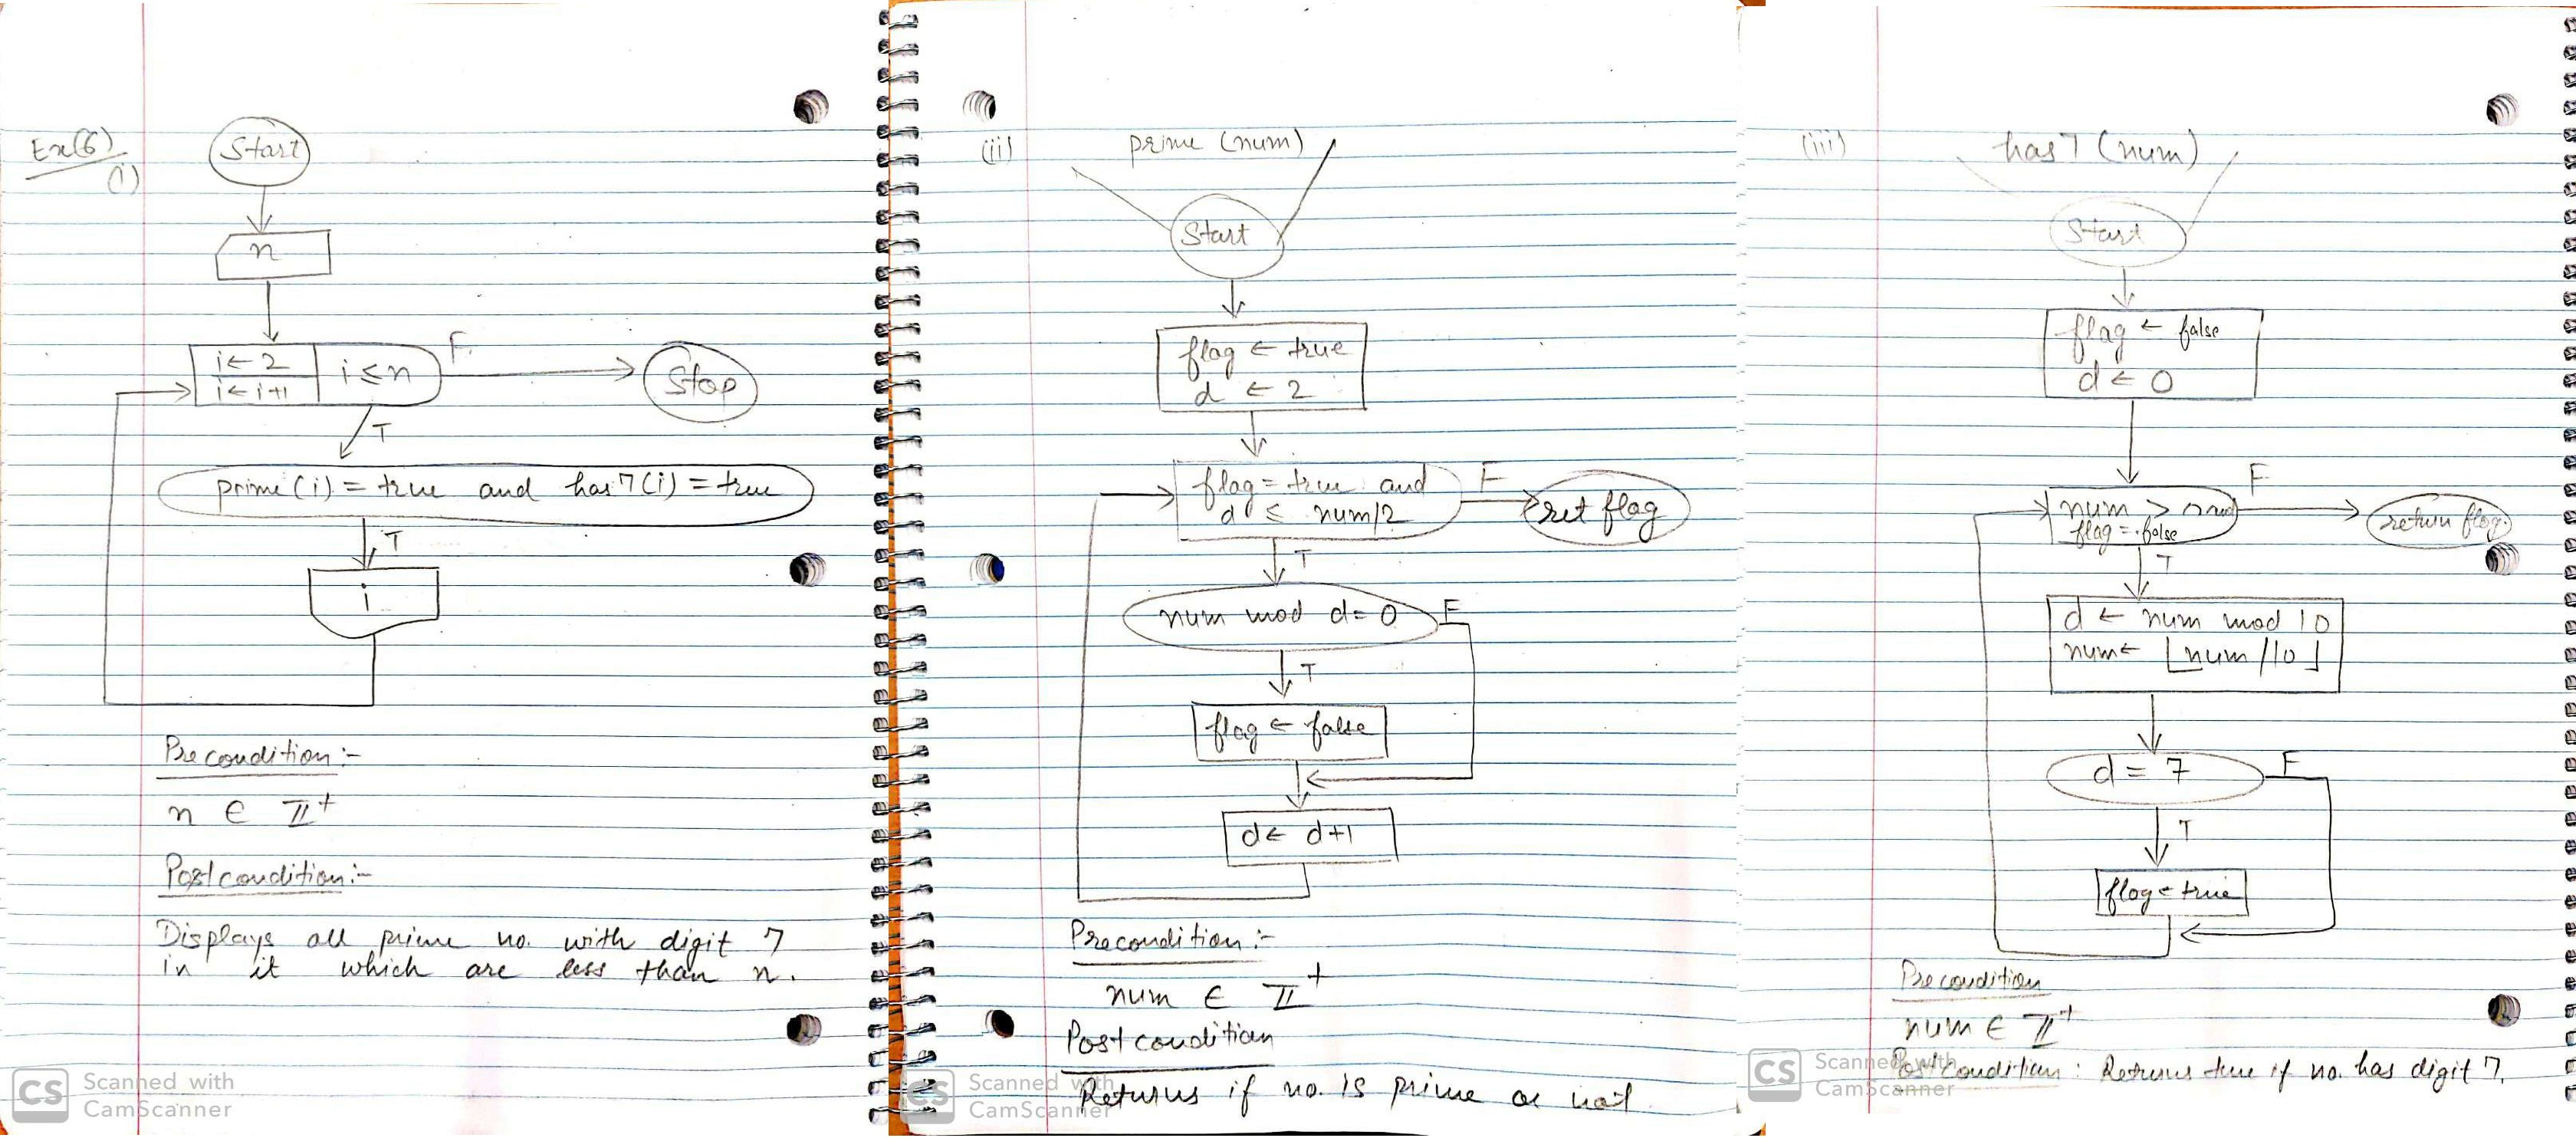 Ex(6)
(i)
Start
n
i ← 2
i ← i+1
i ≤ n
F
Stop
T
prime(i) = true and has7(i) = true
T
i
Precondition :-
n ∈ ℤ⁺
Postcondition :-
Displays all prime no. with digit 7
in it which are less than n.
CS Scanned with
CamScanner
(ii)
prime (num)
Start
flag ← true
d ← 2
flag = true and
d ≤ num/2
F
ret flag
T
num mod d = 0
F
T
flag ← false
d ← d+1
Precondition :-
num ∈ ℤ⁺
Postcondition
Returns if no. is prime or not
CS Scanned with
CamScanner
(iii)
has7 (num)
Start
flag ← false
d ← 0
num >
flag = false
F
return flag
T
d ← num mod 10
num ← ⌊num/10⌋
d = 7
F
T
flag ← true
Precondition
num ∈ ℤ⁺
Postcondition : Returns true if no. has digit 7.
CS Scanned with
CamScanner